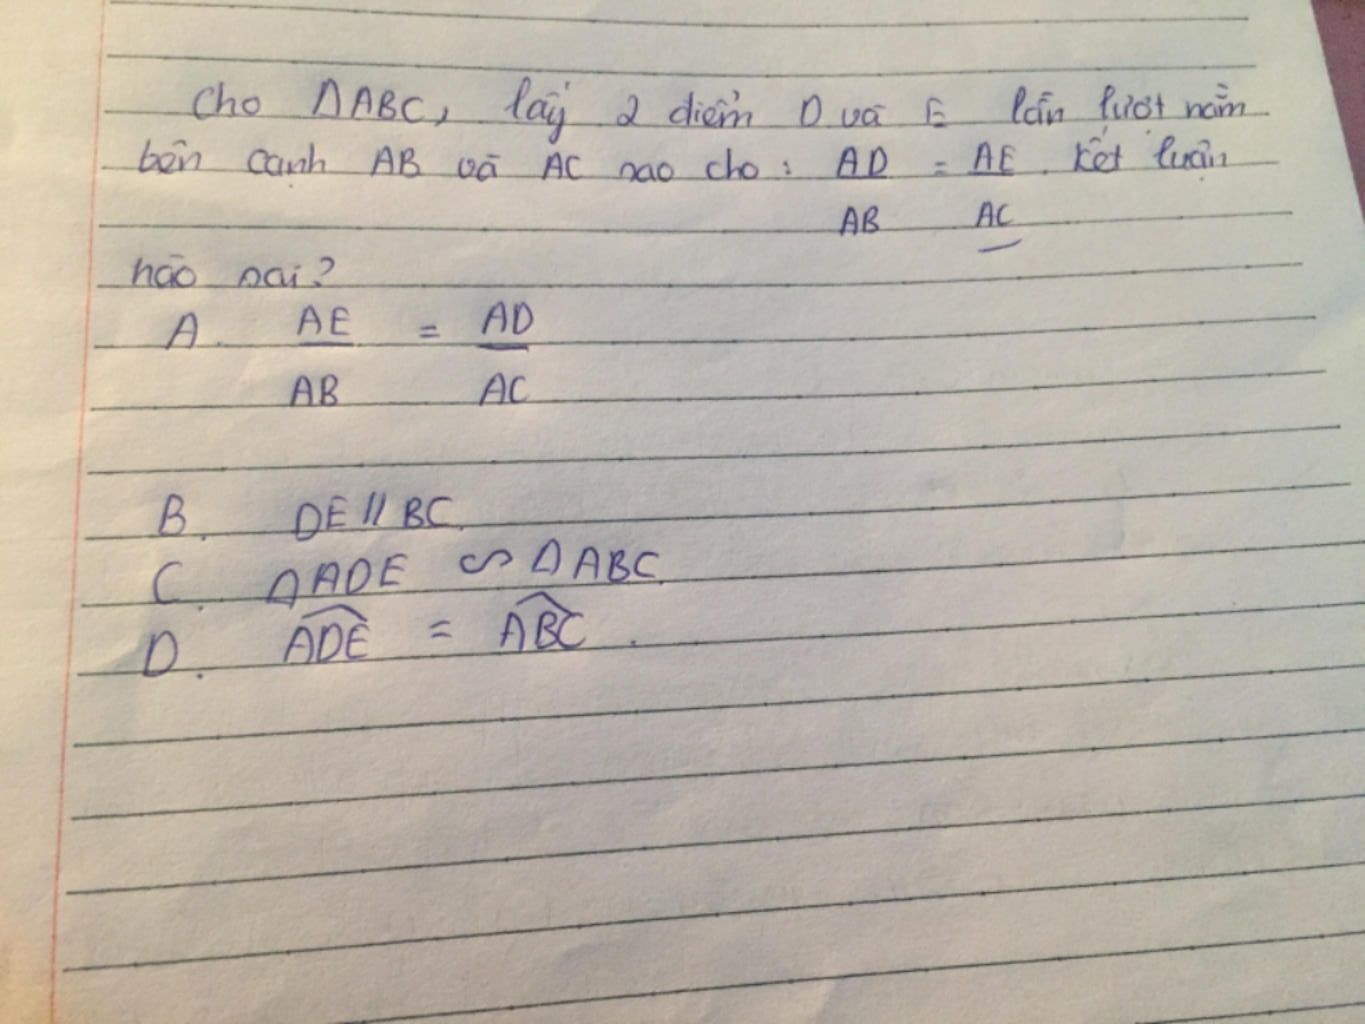 Cho ΔABC, lấy 2 điểm D và E lần lượt nằm
bên cạnh AB và AC sao cho: AD/AB = AE/AC. Kết luận
nào sai?
A. AE/AB = AD/AC
B. DE // BC.
C. ΔADE ∽ ΔABC.
D. \widehat{ADE} = \widehat{ABC}.